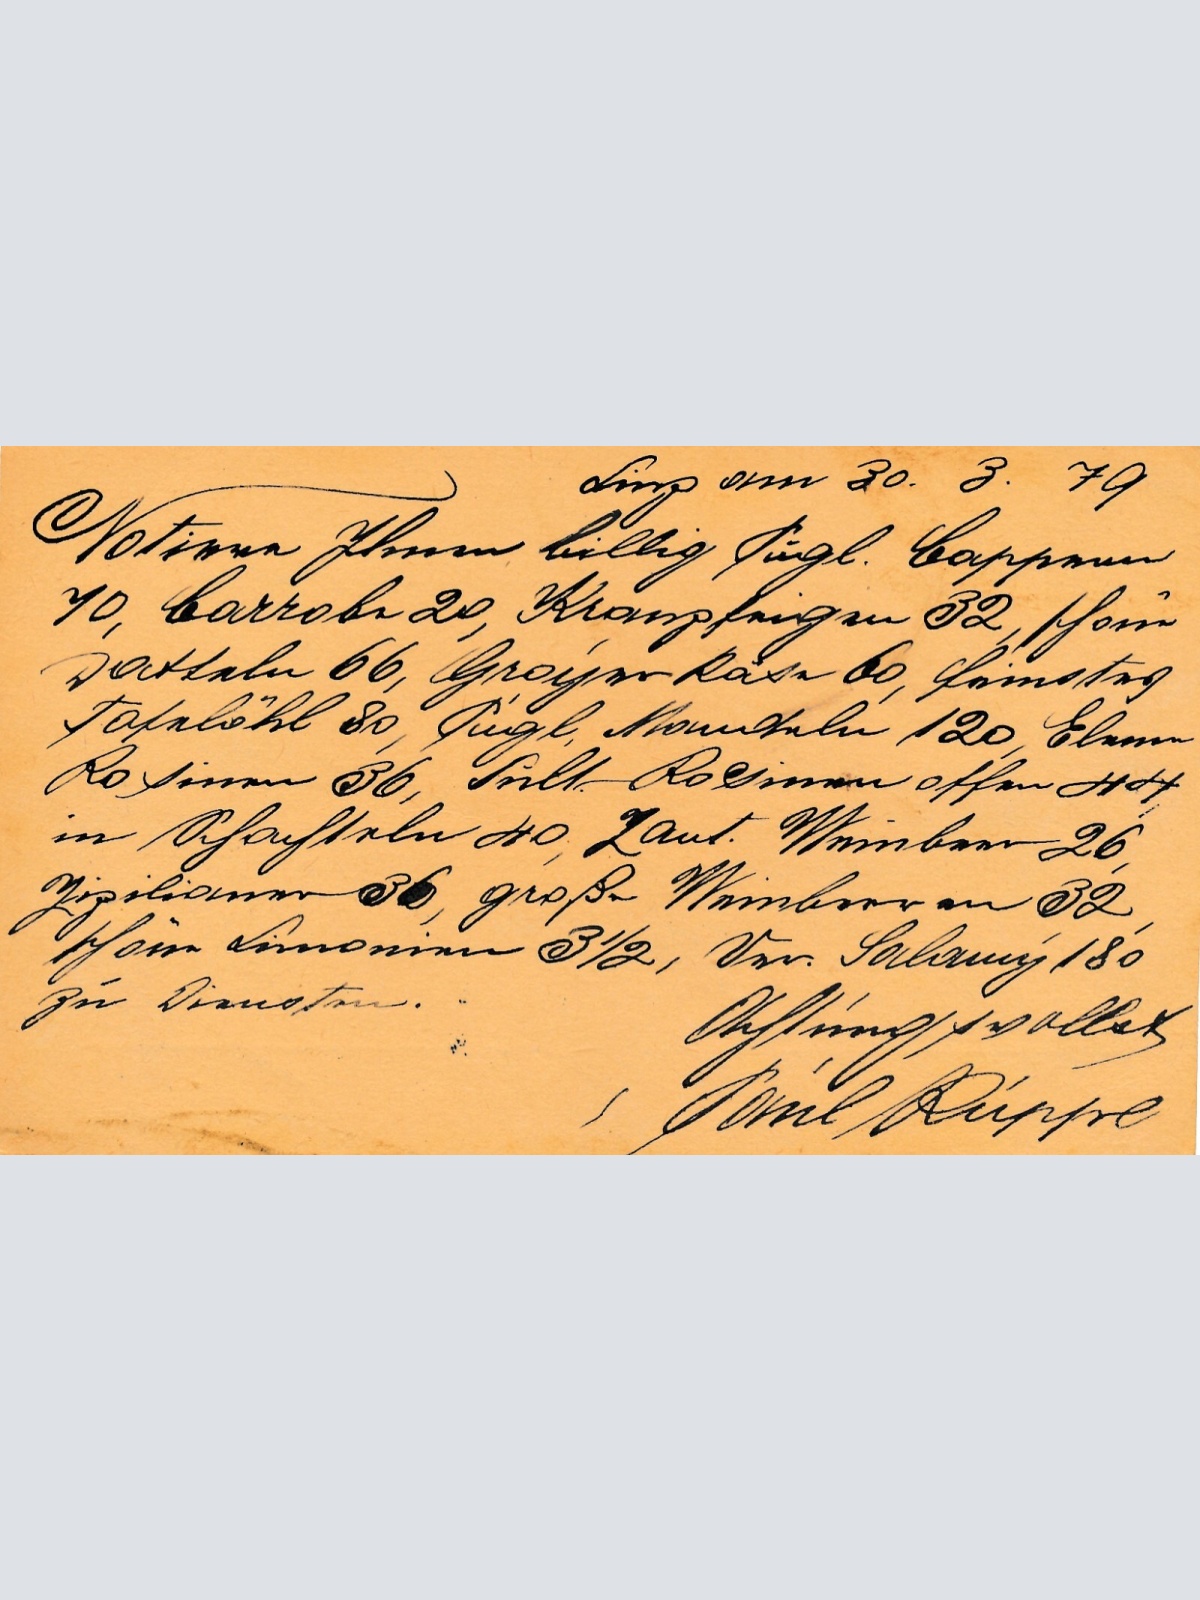 Linz am 30. 3. 79
Notiere Ihnen billig Pugl. Cappern
70, Carrobe 20, Kranzfeigen 32, schöne
Datteln 66, Groyer Käse 60, feinstes
Tafelöhl 80, Pugl. Mandeln 120, Eleme
Rosinen 36, Sult. Rosinen offen 44,
in Schachteln 40, Zant. Weinbeer 26,
Zizilianer 36, große Weinbeeren 32,
schöne Limonien 3 1/2, Ver. Salamy 180
zu Diensten.
Achtungsvollst
Paul